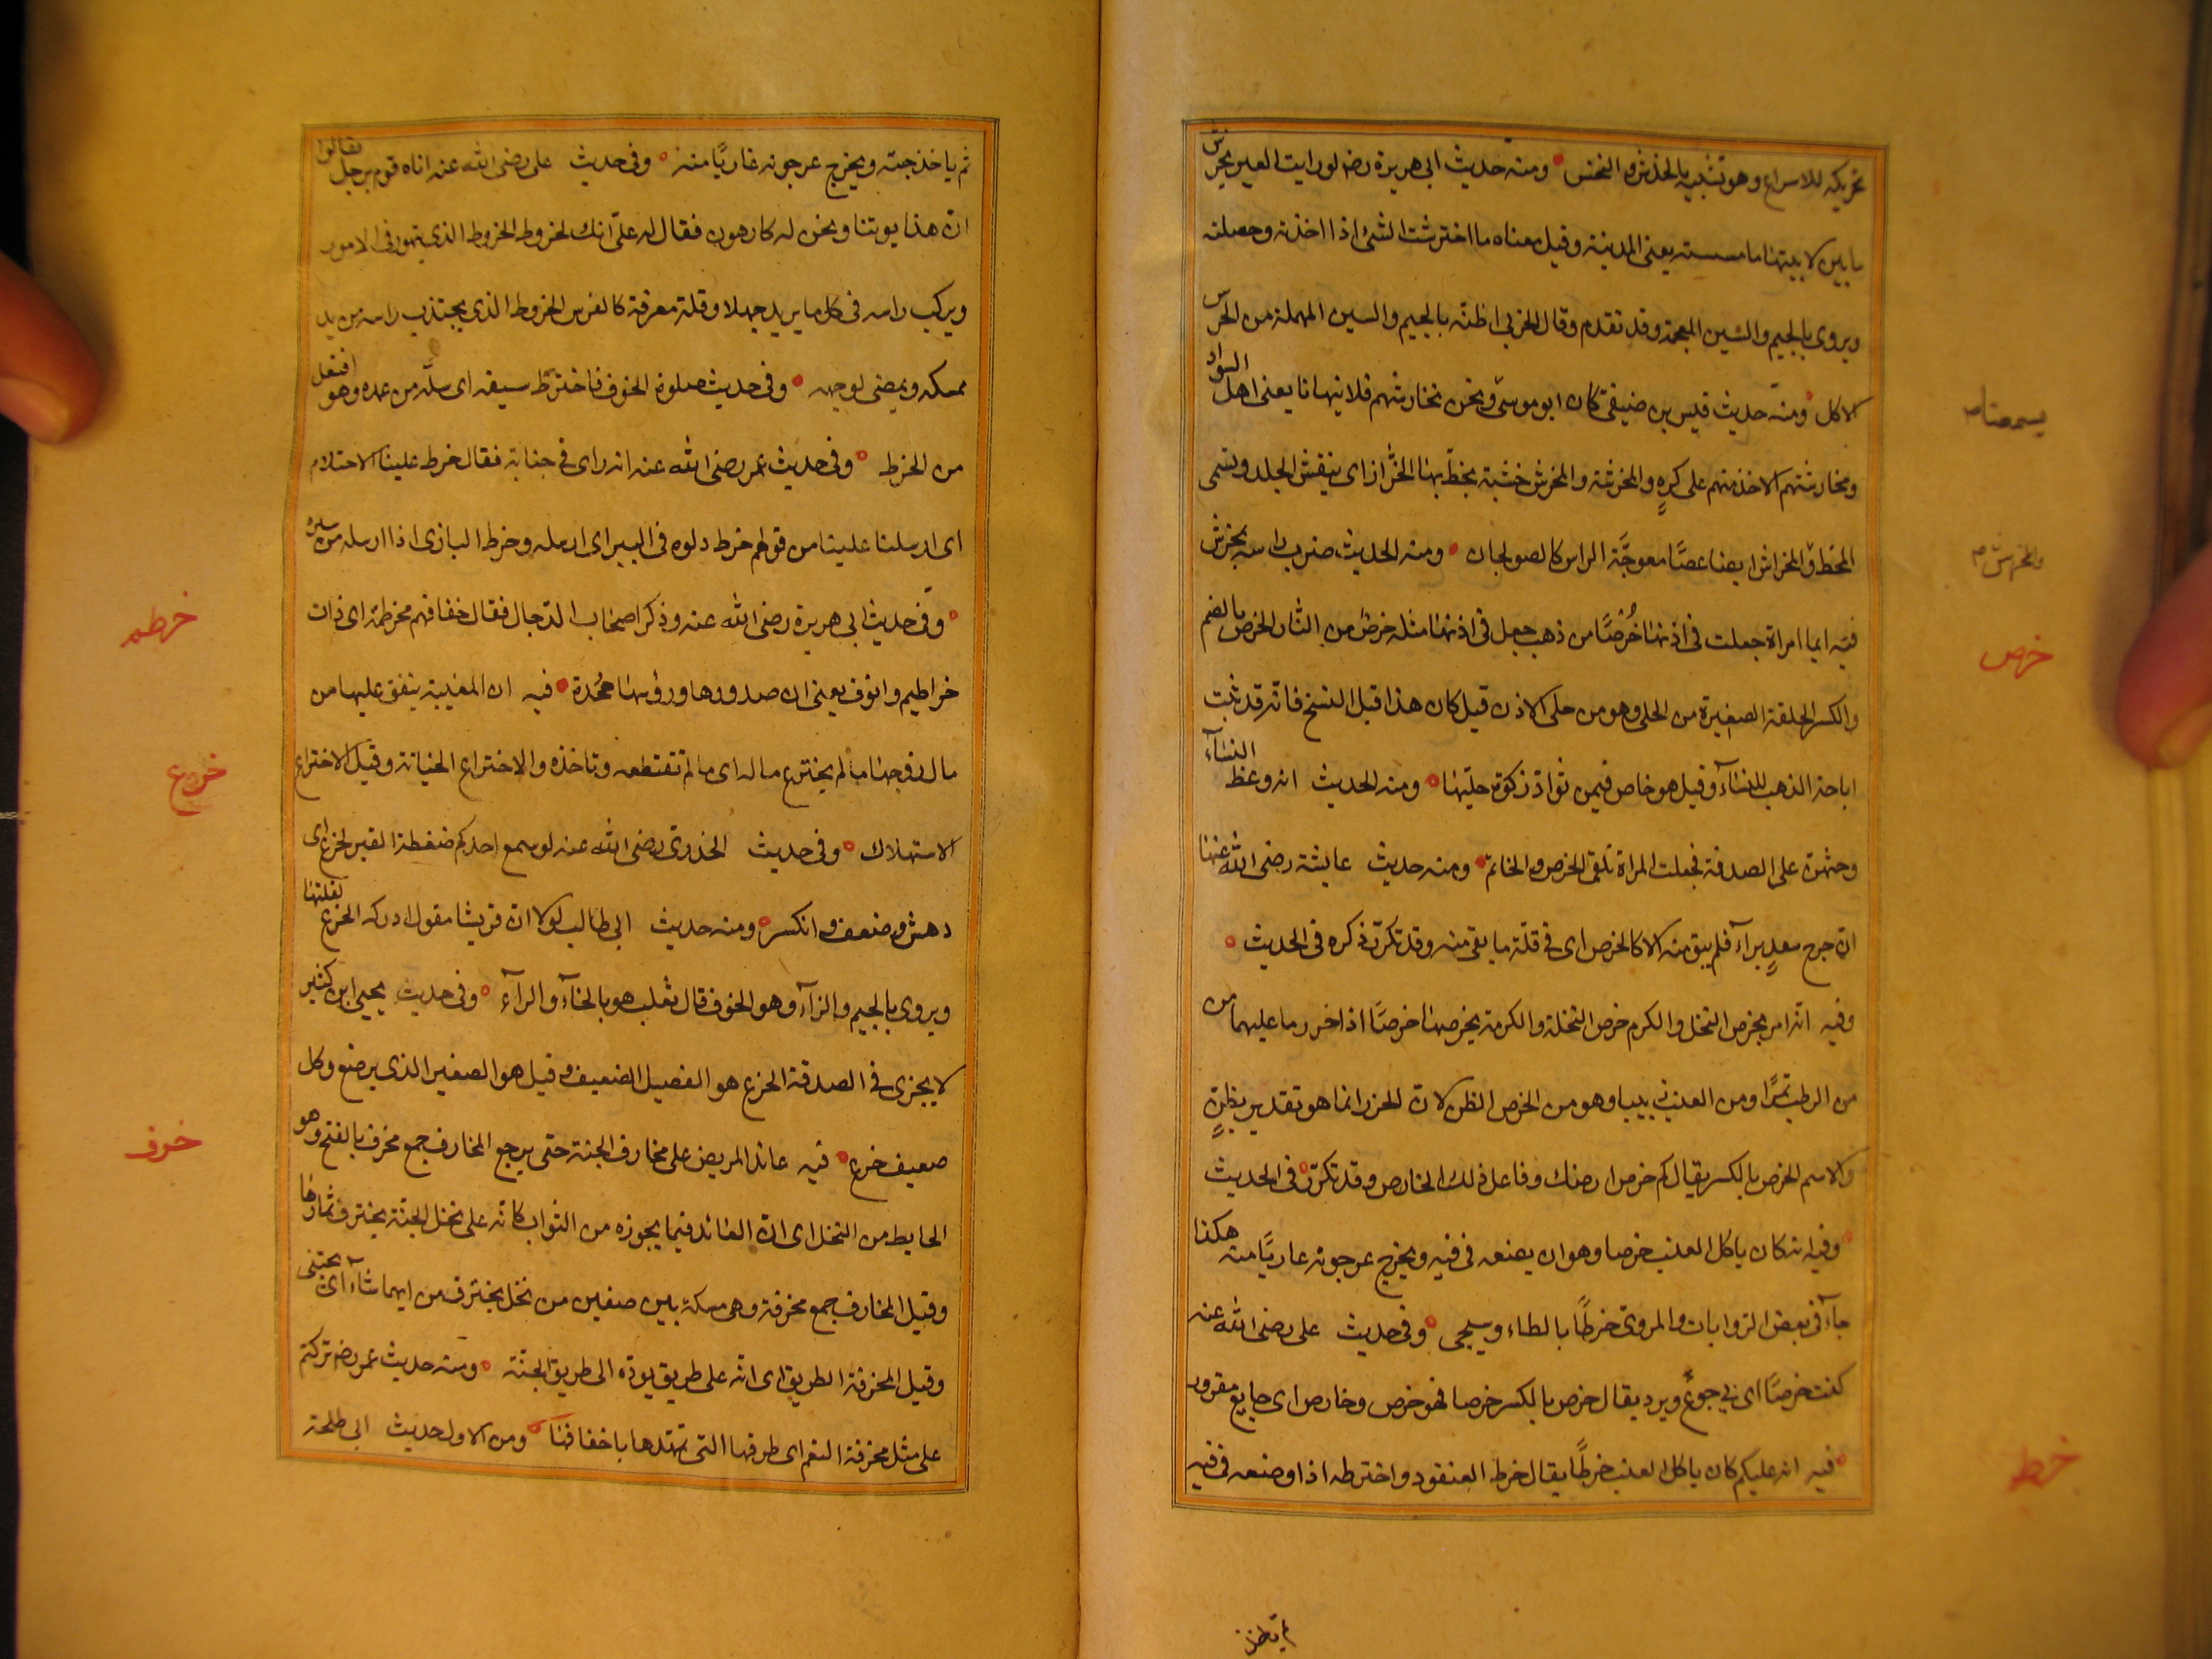 تحريكه للاسراع وهو تشبيه بالخدش والنخس ومنه حديث ابى هريرة رضه لو رايت العير تخرش
ما بين لابيتها ما مسسته يعنى المدينة وقيل معناه ما اخترشت الشئ اذا اخذته وحصلته
ويروى بالجيم والشين المعجمة وقد تقدم وقال الحربى اظنه بالجيم والسين المهملة من الجرس
الاكل ومنه حديث قيس بن صيفى كان ابو موسى ونحن نخارشهم فلا ينهانا يعنى اهل السواد
ومخارشتهم الاخذ منهم على كرهٍ والمخرشة والمخرش خشبة يخطّ بها الخرّاز اى ينقش الجلد ويسمى
المخط والمخراش ايضا عصًا معوجّة الراس كالصولجان ومنه الحديث ضرب راسه بمخرش
فيه ايما امراة جعلت فى اذنها خُرْصًا من ذهب جعل فى اذنها مثله خرصٌ من النار الخرص بالضم
والكسر الحلقة الصغيرة من الحلى وهو من حلى الاذن قيل كان هذا قبل النسخ فانه قد ثبت
اباحة الذهب للنسآء وقيل هو خاص فيمن لم تؤدّ زكوة حليّها ومنه الحديث انه وعظ النسآء
وحثهن على الصدقة فجعلت المراة تلقى الخرص والخاتم ومنه حديث عايشة رضى الله عنها
ان جرح سعدٍ برآء فلم يبق منه الا كالخرص اى فى قلّة ما بقى منه وقد تكرّر ذكره فى الحديث
وفيه انه امر بخرص النخل والكرم خرص النخلة والكرمة يخرصها خرصًا اذا حزر ما عليهما من
من الرطب تمرًا ومن العنب زبيبا وهو من الخرص الظن لان الحزر انما هو تقدير بظنٍّ
والاسم الخرص بالكسر يقال كم خرص ارضك وفاعل ذلك الخارص وقد تكرّر فى الحديث
وفيه انه كان ياكل العنب خرصا وهو ان يضعه فى فيه ويخرج عرجونه عاريًا منه هكذا
جآء فى بعض الروايات والمروىّ خرطًا بالطاء وسيجى وفى حديث على رضى الله عنه
كنت خرصًا اى بى جوعٌ وبرد يقال خرص بالكسر خرصا فهو خرص وخارص اى جايع مقرور
فيه انه عليكم كان ياكل العنب خرطًا يقال خرط العنقود واخترطه اذا وضعه فى فيه
خرص
خرط
ثم ياخذ حبّه ويخرج عرجونه عاريًا منه وفى حديث على رضى الله عنه اتاه قوم برجل فقالوا
انّ هذا يؤمنا ونحن له كارهون فقال له علىّ انك لخروط الخروط الذى يتهور فى الامور
ويركب راسه فى كل ما يريد جهلا وقلة معرفة كالفرس الخروط الذى يجتذب راسه من يد
ممسكه ويمضى لوجهه وفى حديث صلوة الخوف فاخترط سيفه اى سلّه من غمده وهو افتعل
من الخرط وفى حديث عمر رضى الله عنه انه راى فى جنابة فقال خرط علينا الاحتلام
اى ارسلنا علينا من قولهم خرط دلوه فى البير اى ارسله وخرط البازى اذا ارسله من سيره
وفى حديث ابى هريرة رضى الله عنه وذكر اصحاب الدجال فقال خفافهم مخرطمة اى ذات
خراطيم وانوف يعنى ان صدورها ورؤسها محدّدة فيه ان المغيبة ينفق عليها من
مال زوجها ما لم يخترع ماله اى ما لم تقتطعه وتاخذه والاختراع الخيانة وقيل الاختراع
الاستهلاك وفى حديث الخدرى رضى الله عنه لو سمع احدكم ضغطة القبر لخرع اى
دهش وضعف وانكسر ومنه حديث ابى طالب لولا ان قريشا تقول ادركه الخرع لقلتها
ويروى بالجيم والزآء وهو الخوف قال ثعلب هو بالخآء والرآء وفى حديث يحيى ابن كثير
لا يجزى فى الصدقة الخرع هو الفصيل الضعيف وقيل هو الصغير الذى يرضع وكل
ضعيف خرع فيه عائد المريض على مخارف الجنة حتى يرجع المخارف جمع مخرف بالفتح وهو
الحايط من النخل اى ان العائد فيما يحوزه من الثواب كانه على نخل الجنة يخترف ثمارها
وقيل المخارف جمع مخرفة وهى سكة بين صفين من نخل يخترف من ايهما شآء اى يجتنى
وقيل المخرفة الطريق اى انه على طريق يودّه الى طريق الجنّة ومنه حديث عمر رضه تركتم
على مثل مخرفة النعم اى طرقها التى تمهدها باخفافها ومن الاول حديث ابى طلحة
خرطم
خرع
خرف